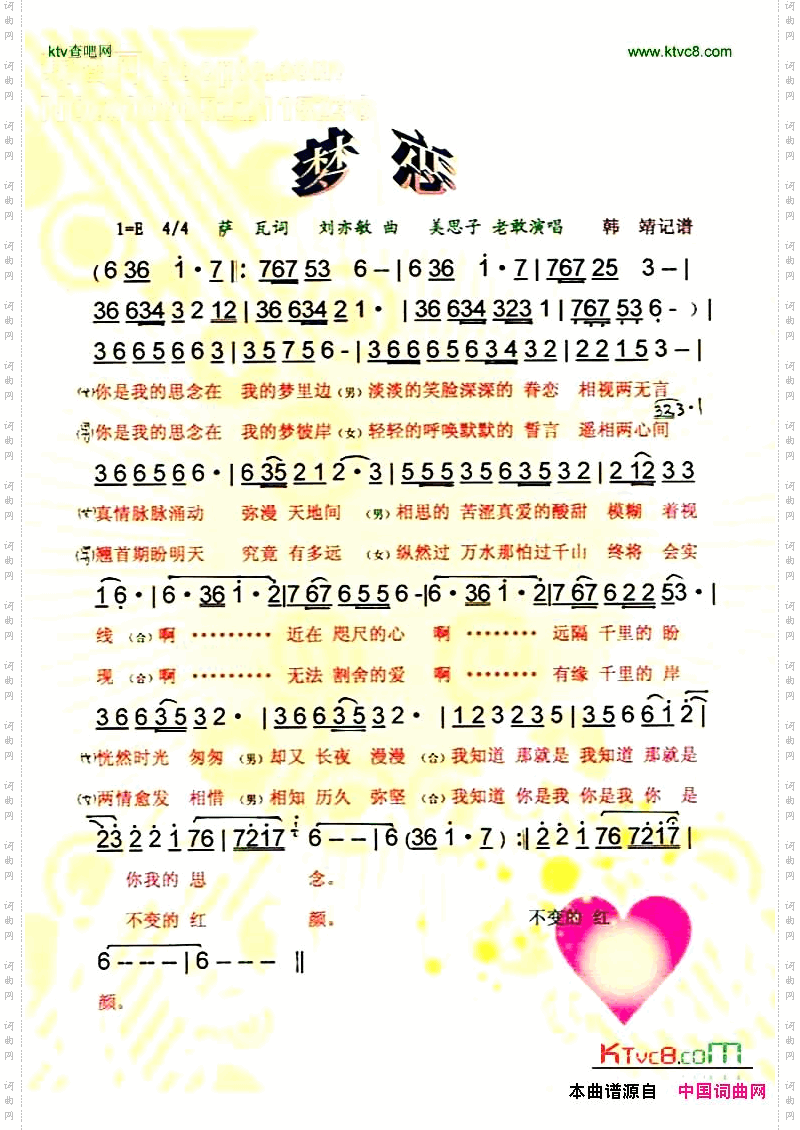 ktv查吧网 www.ktvc8.com
梦 恋
1=E 4/4 萨 瓦词 刘亦敏 曲 美思子 老敢演唱 韩 靖记谱
(6 36 i·7 ‖: 767 53 6 – | 6 36 i·7 | 767 25 3 – |
36 634 3 2 12 | 36 634 2 1· | 36 634 323 1 | 767 53 6 - ) |
3 6 6 5 6 6 3 | 3 5 7 5 6 - | 3 6 6 6 5 6 3 4 3 2 | 2 2 1 5 3 – |
(女)你是我的思念在 我的梦里边 (男) 淡淡的笑脸深深的 眷恋 相视两无言
323·1
你是我的思念在 我的梦彼岸 (女) 轻轻的呼唤默默的 誓言 遥相两心间
3 6 6 5 6 6· | 6 35 2 1 2·3 | 5 5 5 3 5 6 5 3 5 3 2 | 2 12 3 3
(女)真情脉脉涌动 弥漫 天地间 (男) 相思的 苦涩真爱的酸甜 模糊 着视
翘首期盼明天 究竟 有多远 (女) 纵然过 万水那怕过千山 终将 会实
1 6· | 6·36 i·2 | 7 67 6 5 5 6 - | 6·36 i·2 | 7 67 6 2 2 53· |
线 (合) 啊 ········· 近在 咫尺的心 啊 ········· 远隔 千里的 盼
现 (合) 啊 ········· 无法 割舍的爱 啊 ········· 有缘 千里的 岸
3 6 6 3 5 3 2· | 3 6 6 3 5 3 2· | 1 2 3 2 3 5 | 3 5 6 6 i 2 |
(女)恍然时光 匆匆 (男) 却又 长夜 漫漫 (合) 我知道 那就是 我知道 那就是
(女)两情愈发 相惜 (男) 相知 历久 弥坚 (合) 我知道 你是我 你是我 你 是
23 2 2 1 76 | 7217 i 6 – – | 6 (36 i·7 ) :‖ 2 2 1 76 7217 |
你我的 思 念。
不变的 红 颜。 不变的 红
6 - - - | 6 - - - ‖
颜。
KTvc8.com
本曲谱源自 中国词曲网